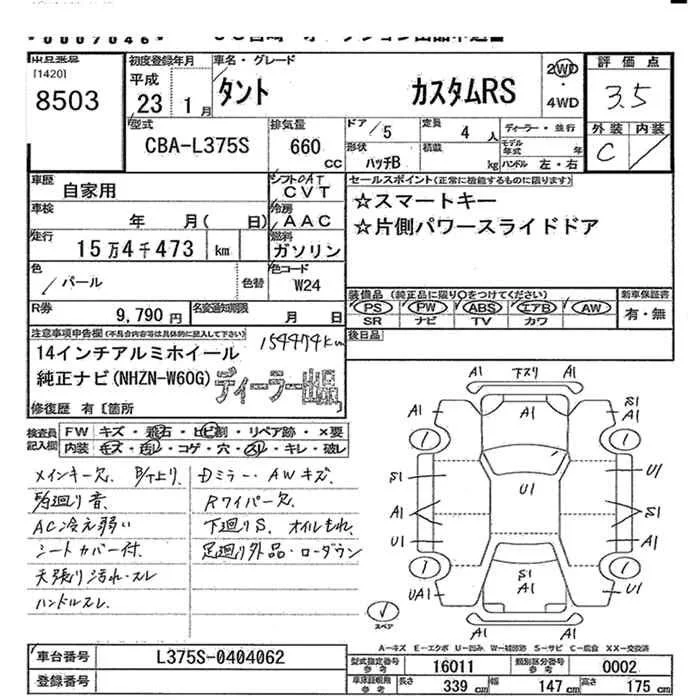 0009046
出品番号
[1420]
8503
初度登録年月
平成
23 1月
車名・グレード
タント カスタムRS
2WD
・
4WD
評価点
3.5
外装 内装
C
型式
CBA-L375S
排気量
660
CC
ドア
5
形状
ハッチB
定員
4 人
積載
kg
ディーラー・並行
モデル年式 年
ハンドル 左・右
車歴
自家用
シフト OAT
CVT
車検
年 月( 日)
冷房
AAC
走行
15万4千473 km
燃料
ガソリン
色
パール
色替
色コード
W24
R券
9,790 円
名変通知期限
月 日
セールスポイント(正常に機能するものに限ります)
☆スマートキー
☆片側パワースライドドア
装備品(純正品に限り○をつけてください)
PS PW ABS エアB AW
SR ナビ TV カワ
新車保証書
有・無
後日品
注意事項申告欄(不具合内容等は具体的に記入して下さい)
14インチアルミホイール
154474km
純正ナビ(NHZN-W60G)
ディーラー出品
修復歴 有〔箇所 〕
検査員
記入欄
FW キズ・飛石・ヒビ割・リペア跡・×要
内装 キズ・汚レ・コゲ・穴・スレ・キレ・破レ
メインキー欠. B/T上り. Dミラー・AWキズ.
Rワイパー欠.
AC冷え弱い
下廻りS. オイルもれ.
シートカバー付.
足廻り外品・ローダウン
天張り汚れ・スレ
ハンドルスレ.
A1 下スリ A1
A1
A1
S1
A1
U1
S1
U1
A1
S1
U1
A1
S1
A1
UA1
U1
A1
A1
スペア
A-キズ E-エクボ U-凹み W-補修跡 S-サビ C-腐食 XX-交換済
車台番号
L375S-0404062
登録番号
型式指定番号
参考
16011
類別区分番号
参考
0002
車体証明規格
参考
長さ
339 cm
幅
147 cm
高さ
175 cm